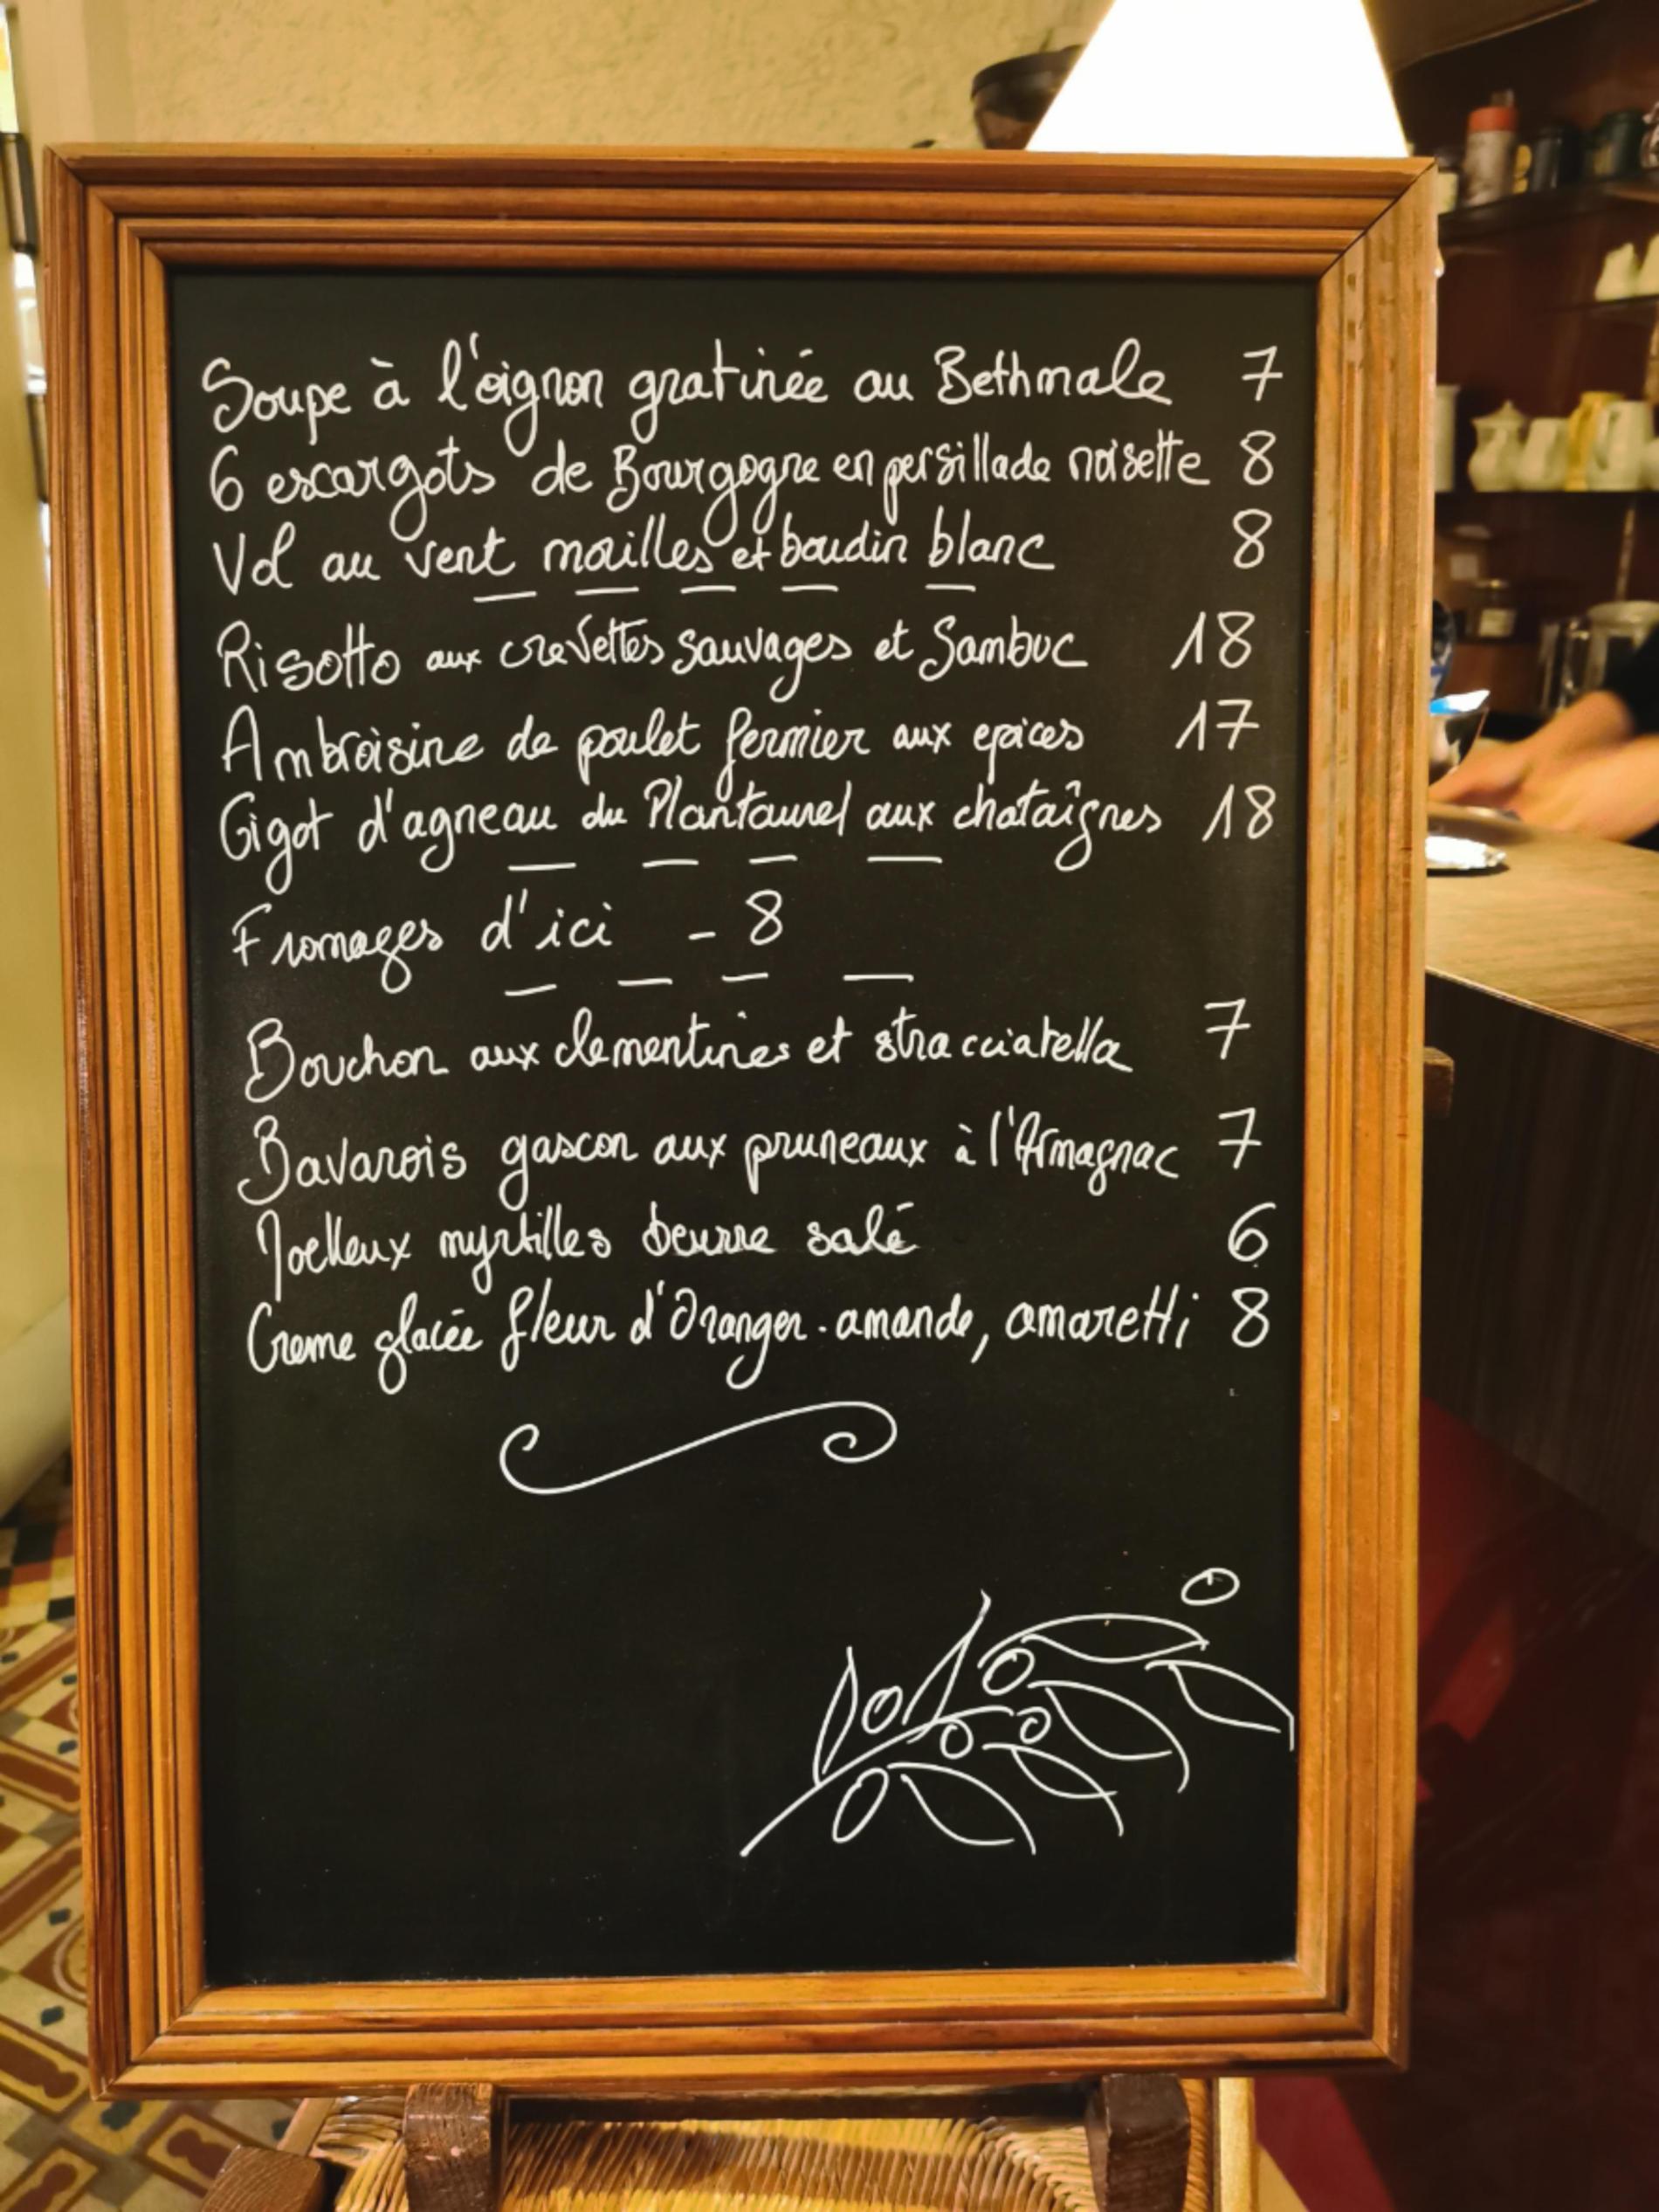 Soupe à l'oignon gratinée au Bethmale 7
6 escargots de Bourgogne en persillade noisette 8
Vol au vent morilles et boudin blanc 8
Risotto aux crevettes sauvages et Sambuc 18
Ambroisine de poulet fermier aux epices 17
Gigot d'agneau du Plantaurel aux chataîgnes 18
Fromages d'ici - 8
Bouchon aux clementines et stracciatella 7
Bavarois gascon aux pruneaux à l'Armagnac 7
Moelleux myrtilles beurre salé 6
Creme glacée fleur d'Oranger. amande, amaretti 8